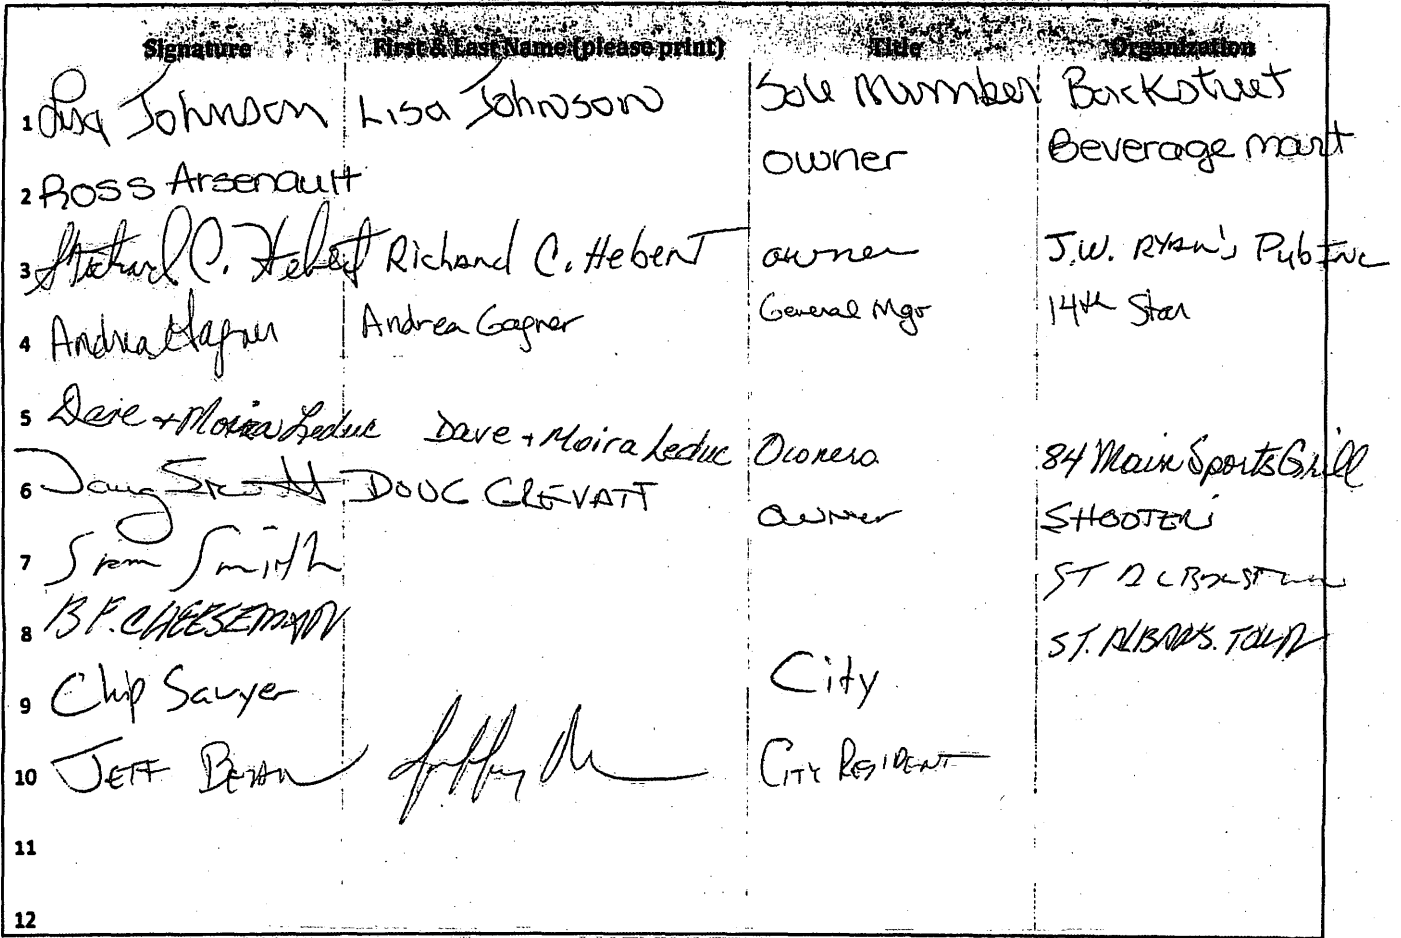 Signature First & Last Name (please print) Title Organization
1 Lisa Johnson Lisa Johnson Sole Mumber Backstreet
2 Ross Arsenault owner Beverage mart
3 Richard C. Hebert Richard C. Hebert owner J.W. RYAN'S Pub Inc
4 Andrea Gagner Andrea Gagner General Mgr 14th Star
5 Dave + Moira Leduc Dave + Moira Leduc Owners 84 Main Sports Grill
6 Doug DOUG GREVATT owner SHOOTERS
7 Sam Smith ST
8 B.F. CHEESEMAN ST. ALBANS. TOWN
9 Chip Sawyer City
10 JEFF CITY RESIDENT
11
12